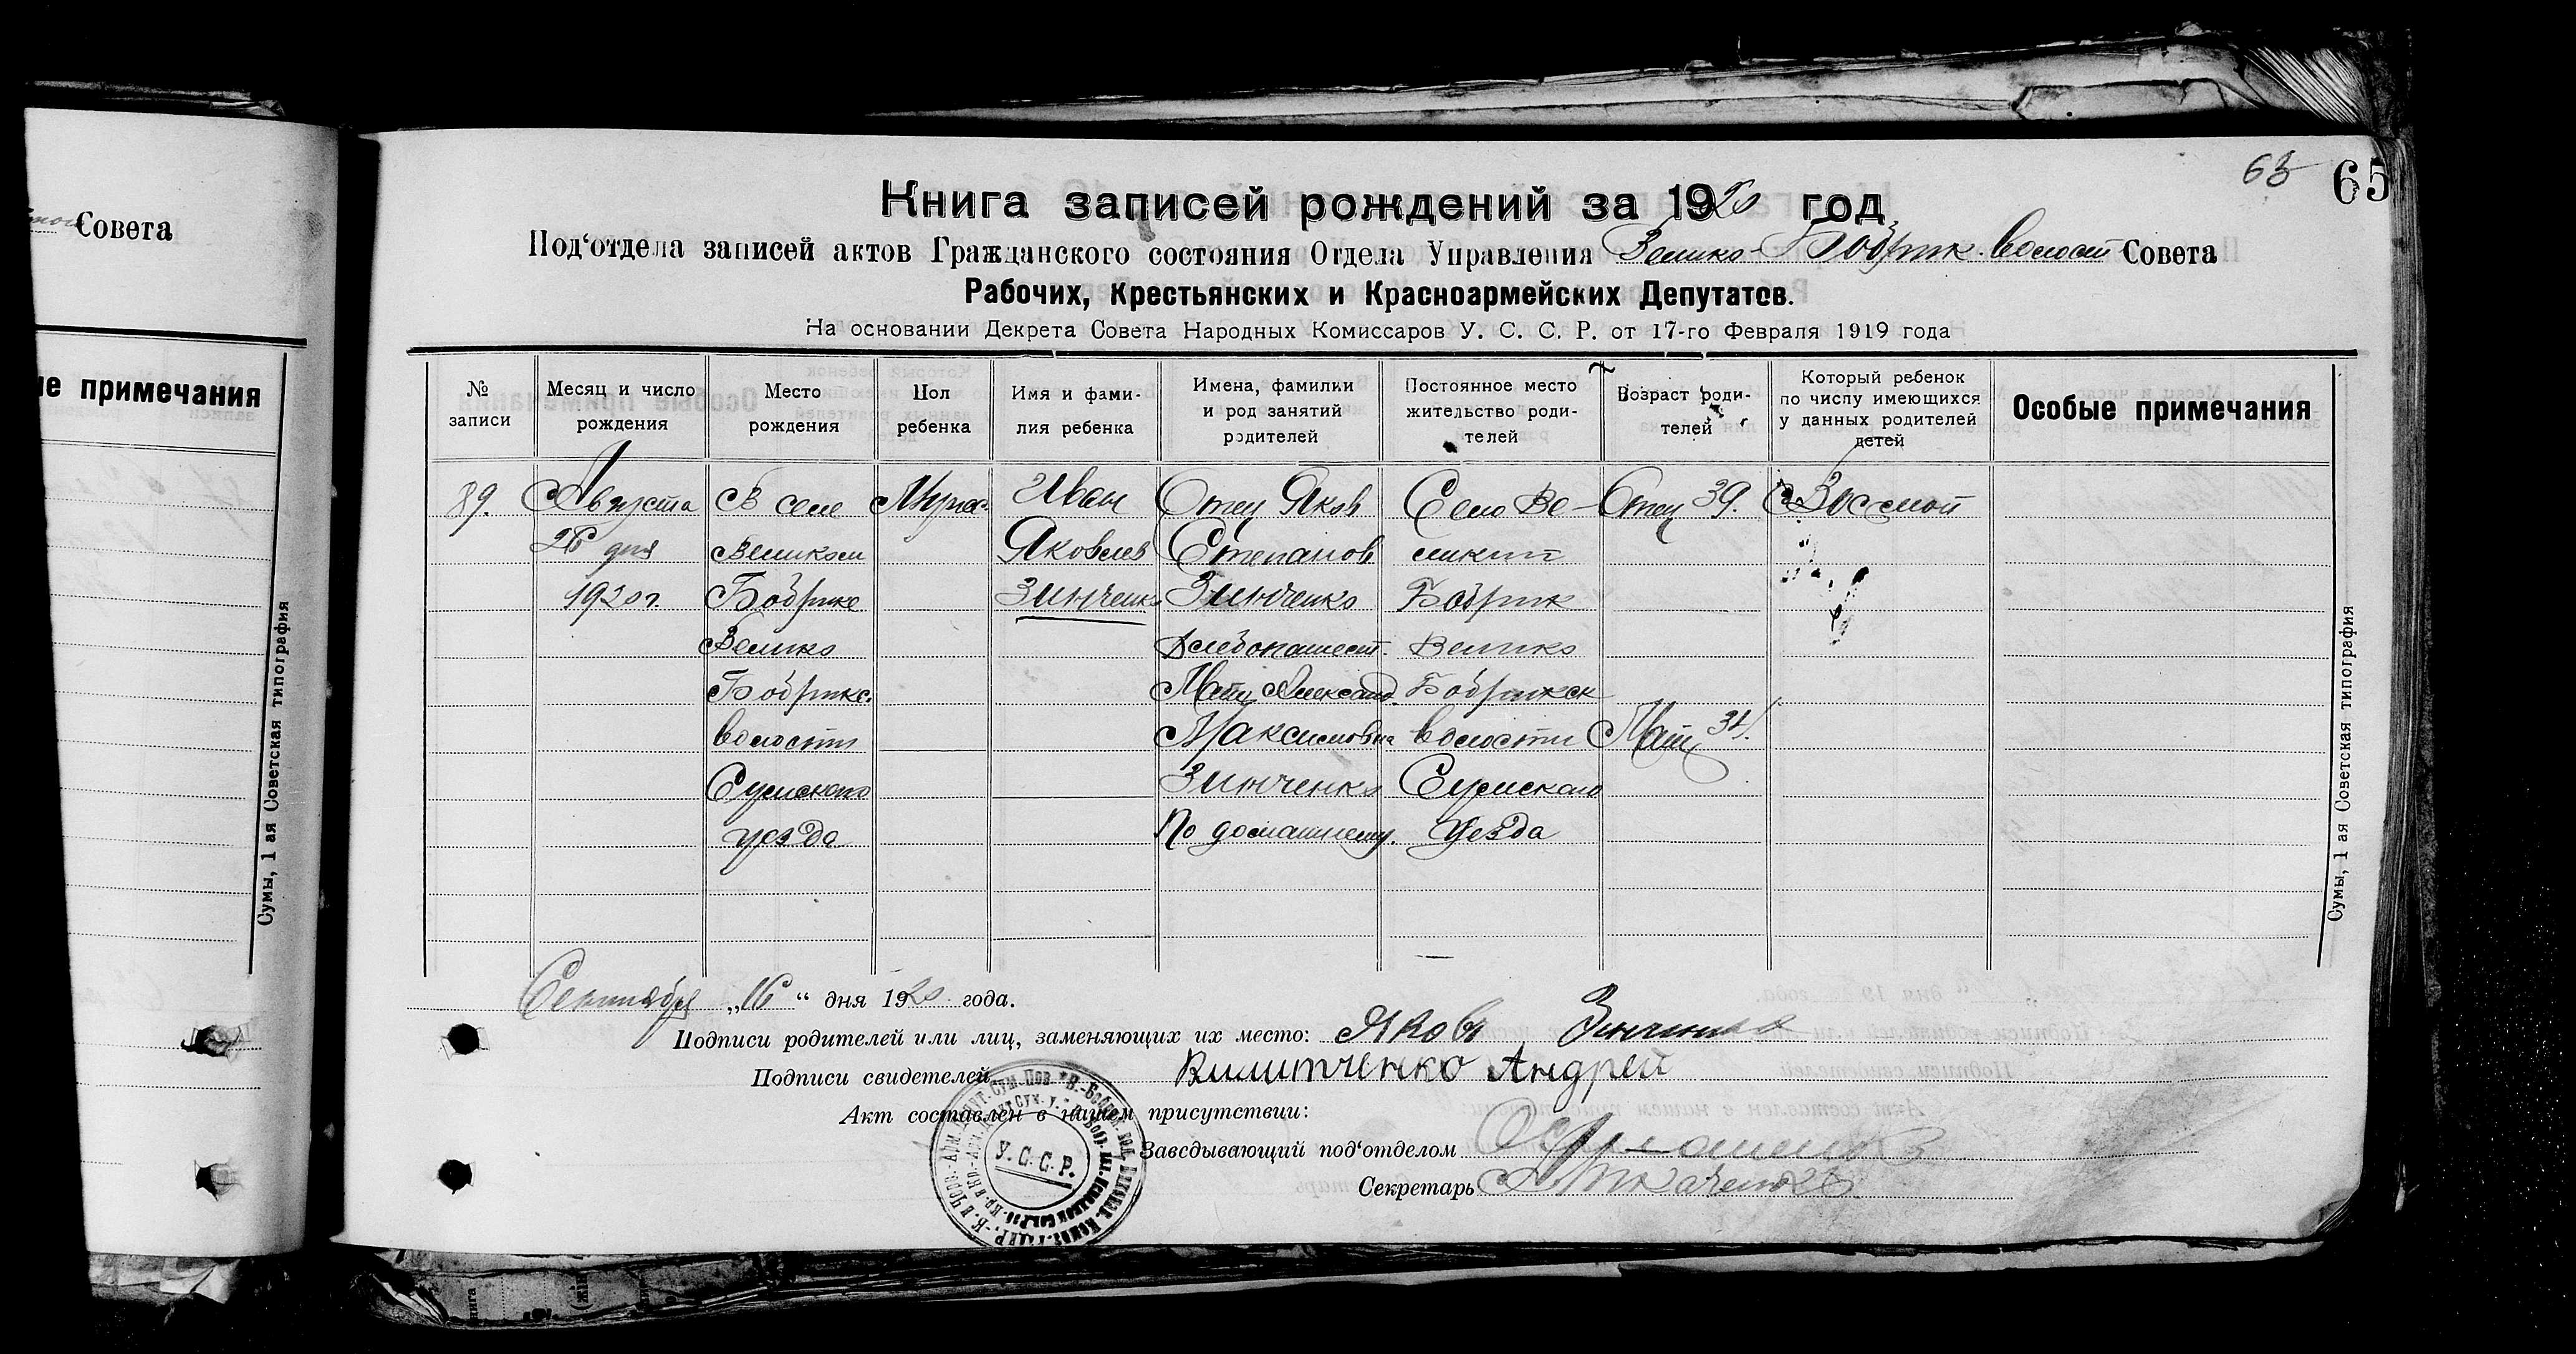 Совета
ие примечания
Сумы, 1 ая Советская типография
65
Книга записей рождений за 1920 год
Под'отдела записей актов Гражданского состояния Отдела Управления Велико-Бобрик. Волост Совета
Рабочих, Крестьянских и Красноармейских Депутатов.
На основании Декрета Совета Народных Комиссаров У. С. С. Р. от 17-го Февраля 1919 года
№ записи
Месяц и число рождения
Место рождения
Пол ребенка
Имя и фами-
лия ребенка
Имена, фамилии
и род занятий
родителей
Постоянное место
жительство роди-
телей
Возраст роди-
телей
Который ребенок
по числу имеющихся
у данных родителей
детей
Особые примечания
89.
Августа
дня
1920 г.
В селе
Великом
Бобрике
Велико
Бобрикс.
волости
Сумского
уезда
Мужс.
Иван
Яковлев
Зинченко
Отец Яков
Степанов
Зинченко
Хлебопашест.
Мать Александ.
Максимовна
Зинченко
По домашнему.
Село Ве-
ликий
Бобрик
Велико
Бобрикск
волости
Сумского
Уезда
Отец 39.
Мать
Восьмой
Сумы, 1 ая Советская типография
Сентября „16“ дня 1920 года.
Подписи родителей или лиц, заменяющих их место: Яков Зинченко
Подписи свидетелей Андрей
Акт составлен в нашем присутствии:
Заведывающий под'отделом
Секретарь
У. С. С. Р.